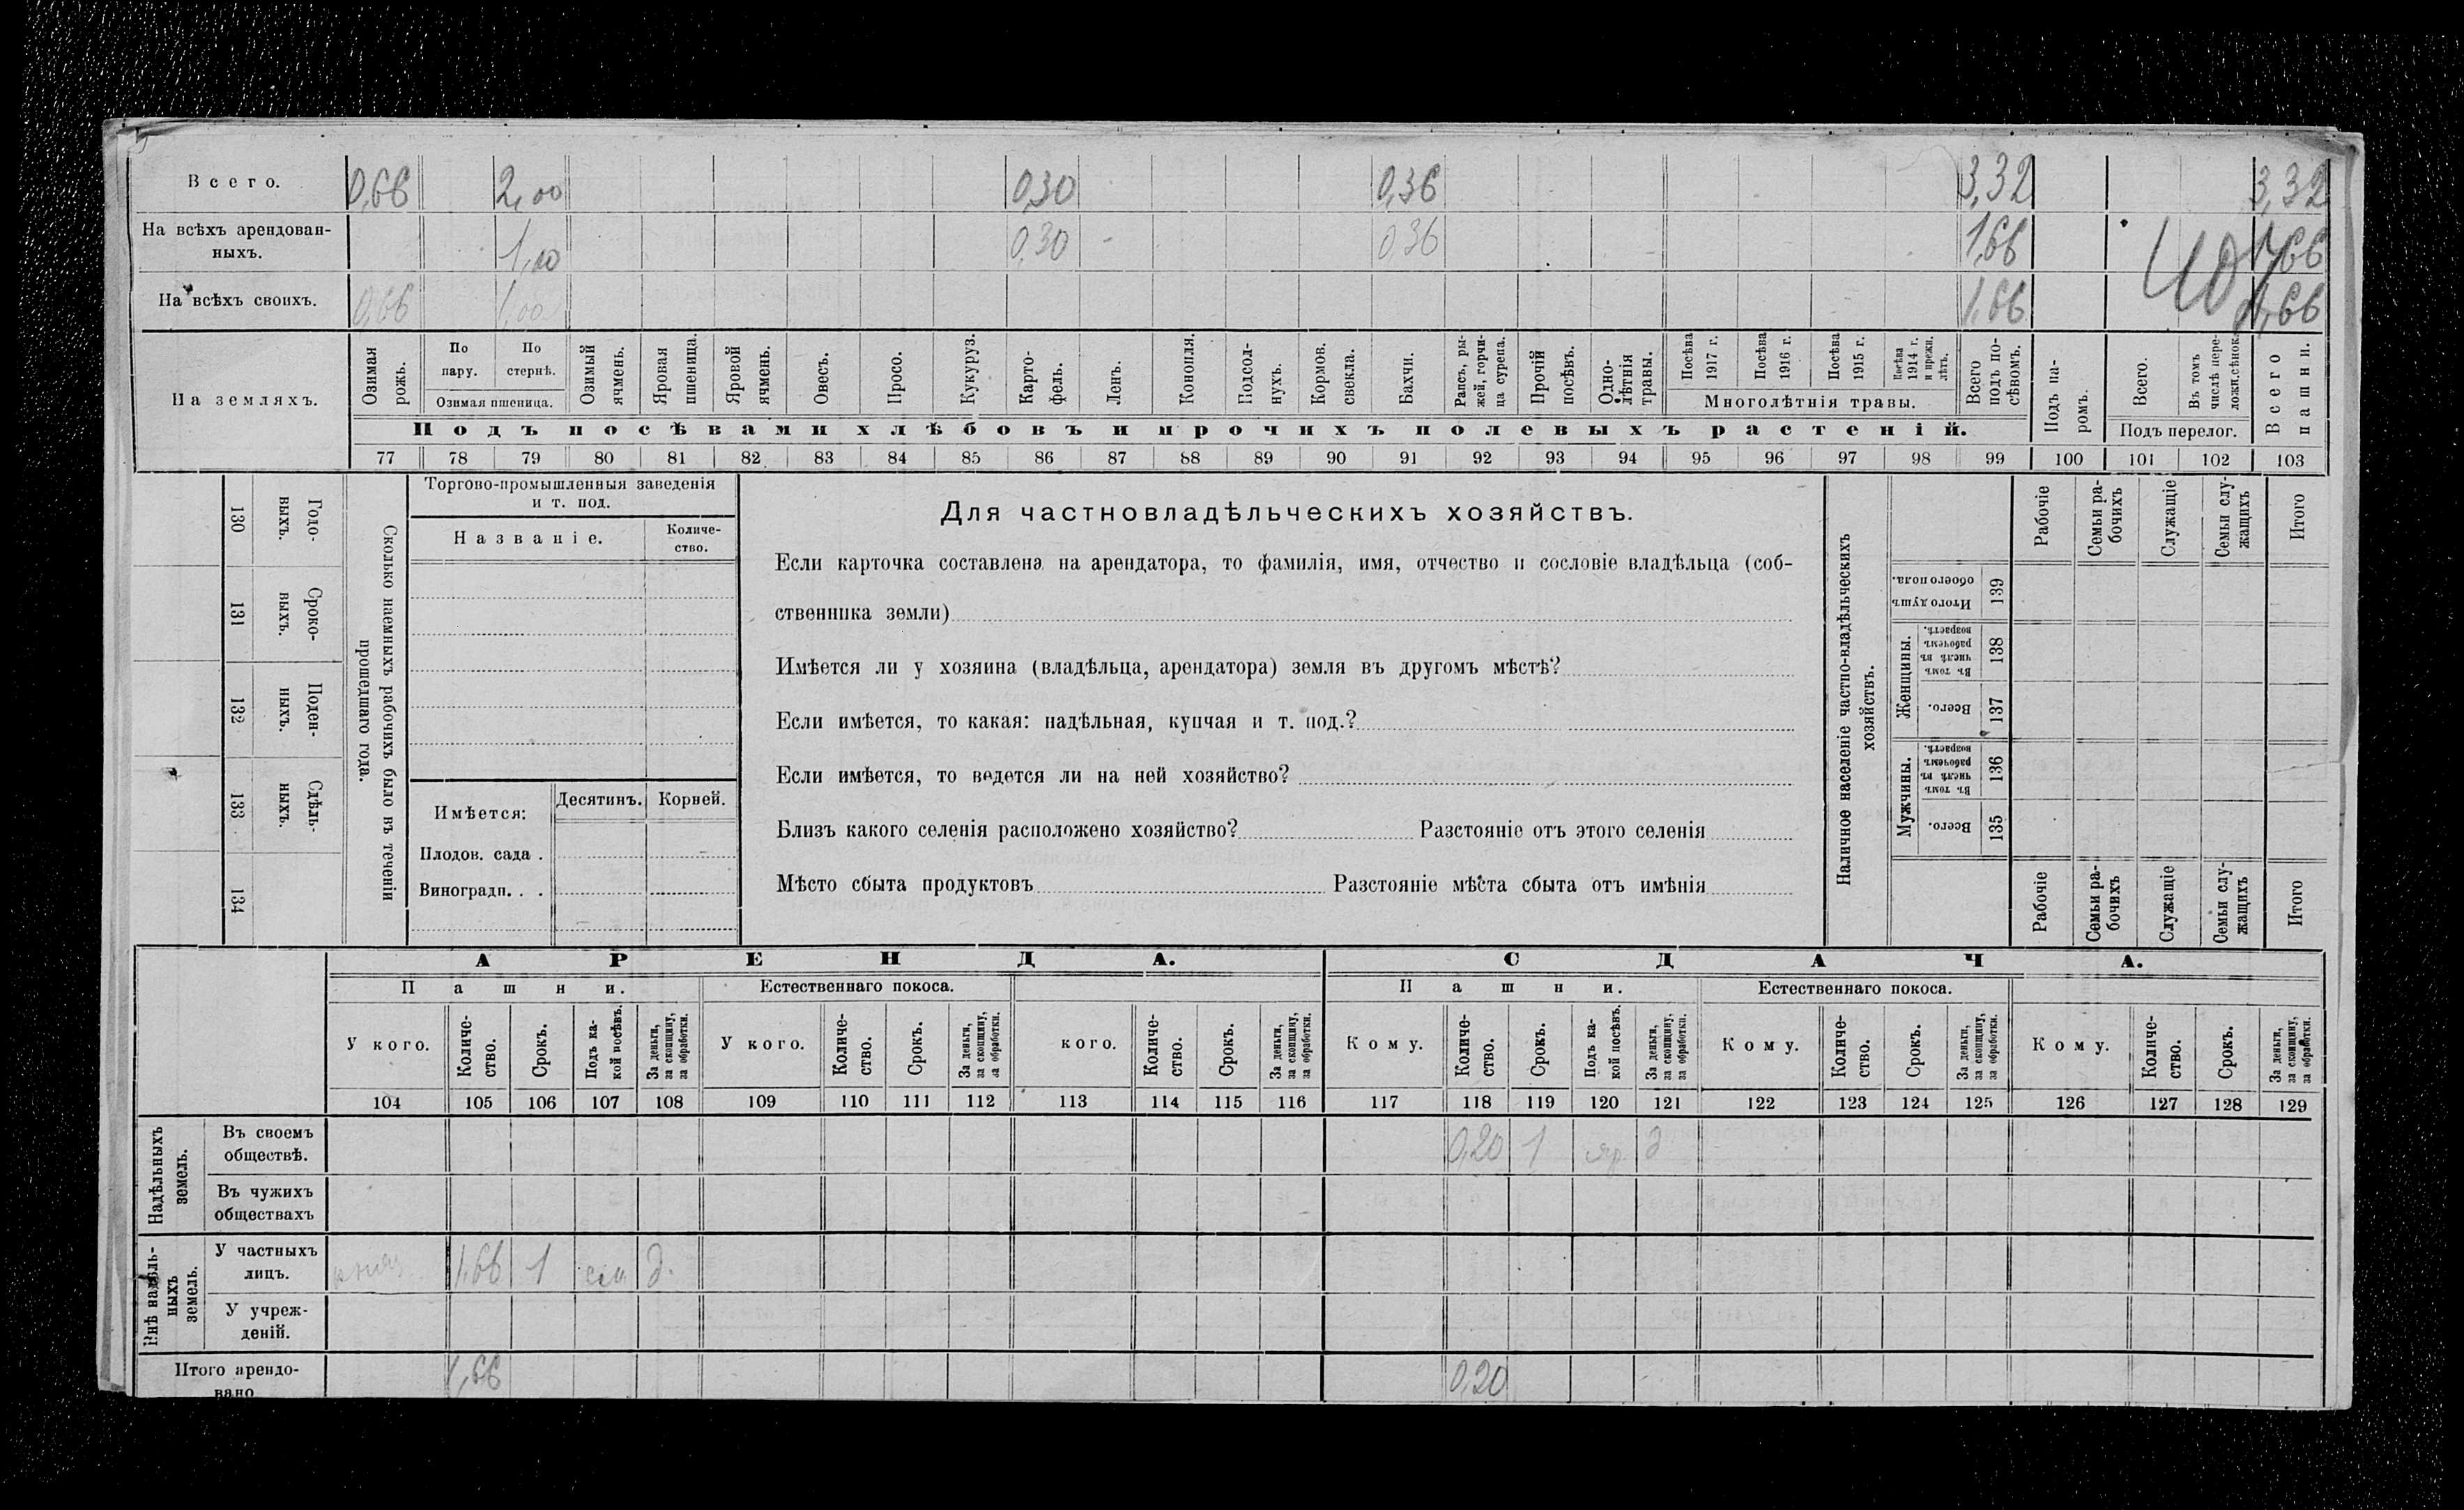 Всего. 0,66 2,00 0,30 0,36 3,32 3,32
На всѣхъ арендован-
ныхъ. 1,00 0,30 - 0,36 1,66 1,66
На всѣхъ своихъ. 0,66 1,00 1,66 1,66
На земляхъ.
Озимая рожь.
По пару.
По стернѣ.
Озимая пшеница.
Озимый ячмень.
Яровая пшеница.
Яровой ячмень.
Овесъ.
Просо.
Кукуруз.
Карто-
фель.
Ленъ.
Конопля.
Подсол-
нухъ.
Кормов. свекла.
Бахчи.
Рапсъ, ры-
жей, горчи-
ца сурепа.
Прочій посѣвъ.
Одно-
лѣтнія травы.
Посѣва 1917 г.
Посѣва 1916 г.
Посѣва 1915 г.
Посѣва 1914 г. и прежн. лѣтъ.
Многолѣтнія травы.
Всего подъ по-
сѣвомъ.
Подъ па-
ромъ.
Всего.
Въ томъ числѣ пере-
ложн. сѣнок.
Подъ перелог.
Всего пашни.
Подъ посѣвами хлѣбовъ и прочихъ полевыхъ растеній.
77 78 79 80 81 82 83 84 85 86 87 88 89 90 91 92 93 94 95 96 97 98 99 100 101 102 103
Годо-
ныхъ.
130
Сроко-
выхъ.
131
Поден-
ныхъ.
132
Сдѣль-
ныхъ.
133
134
Сколько наемныхъ рабочихъ было въ теченіи
прошедшаго года.
Торгово-промышленныя заведенія
и т. под.
Названіе.
Количе-
ство.
Имѣется:
Десятинъ. Корней.
Плодов. сада .
Виноградн. . .
Для частновладѣльческихъ хозяйствъ.
Если карточка составлена на арендатора, то фамилія, имя, отчество и сословіе владѣльца (соб-
ственника земли)
Имѣется ли у хозяина (владѣльца, арендатора) земля въ другомъ мѣстѣ?
Если имѣется, то какая: надѣльная, купчая и т. под.?
Если имѣется, то ведется ли на ней хозяйство?
Близъ какого селенія расположено хозяйство? Разстояніе отъ этого селенія
Мѣсто сбыта продуктовъ Разстояніе мѣста сбыта отъ имѣнія
Наличное населеніе частно-владѣльческихъ
хозяйствъ.
Рабочіе
Семьи ра-
бочихъ
Служащіе
Семьи слу-
жащихъ
Итого
Итого душъ
обоего пола.
139
Женщины.
Въ томъ числѣ въ рабочемъ возрастѣ.
138
Всего.
137
Мужчины.
Въ томъ числѣ въ рабочемъ возрастѣ.
136
Всего.
135
Рабочіе
Семьи ра-
бочихъ
Служащіе
Семьи слу-
жащихъ
Итого
АРЕНДА. СДАЧА.
Пашни. Естественнаго покоса. Пашни. Естественнаго покоса.
У кого.
Количе-
ство.
Срокъ.
Подъ ка-
кой посѣвъ.
За деньги,
за скопщину,
за обработки.
У кого.
Количе-
ство.
Срокъ.
За деньги,
за скопщину,
за обработки.
кого.
Количе-
ство.
Срокъ.
За деньги,
за скопщину,
за обработки.
Кому.
Количе-
ство.
Срокъ.
Подъ ка-
кой посѣвъ.
За деньги,
за скопщину,
за обработки.
Кому.
Количе-
ство.
Срокъ.
За деньги,
за скопщину,
за обработки.
Кому.
Количе-
ство.
Срокъ.
За деньги,
за скопщину,
за обработки.
104 105 106 107 108 109 110 111 112 113 114 115 116 117 118 119 120 121 122 123 124 125 126 127 128 129
Надѣльныхъ
земель.
Въ своемъ
обществѣ. 0,20 1 яр. д
Въ чужихъ
обществахъ
Внѣ надѣль-
ныхъ
земель.
У частныхъ
лицъ. 1,66 1 д.
У учреж-
деній.
Итого арендо-
вано 1,66 0,20